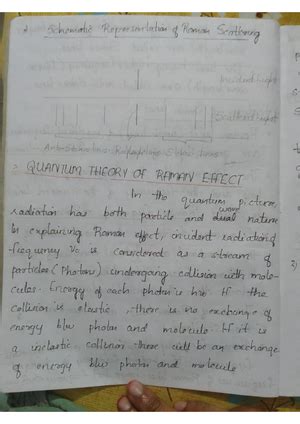 Schematic Representation of Raman Scattering
Incident light
Scattered light
Anti-Stokes lines Rayleigh line Stokes lines
QUANTUM THEORY OF RAMAN EFFECT
In the quantum picture,
radiation has both particle and wave dual nature
In explaining Raman effect, incident radiation of
frequency ν₀ is considered as a stream of
particles (Photons) undergoing collision with mole-
cules. Energy of each photon is hν₀ If the
collision is elastic, there is no exchange of
energy b/w photon and molecule. If it is
a inelastic collision there will be an exchange
of energy b/w photon and molecule